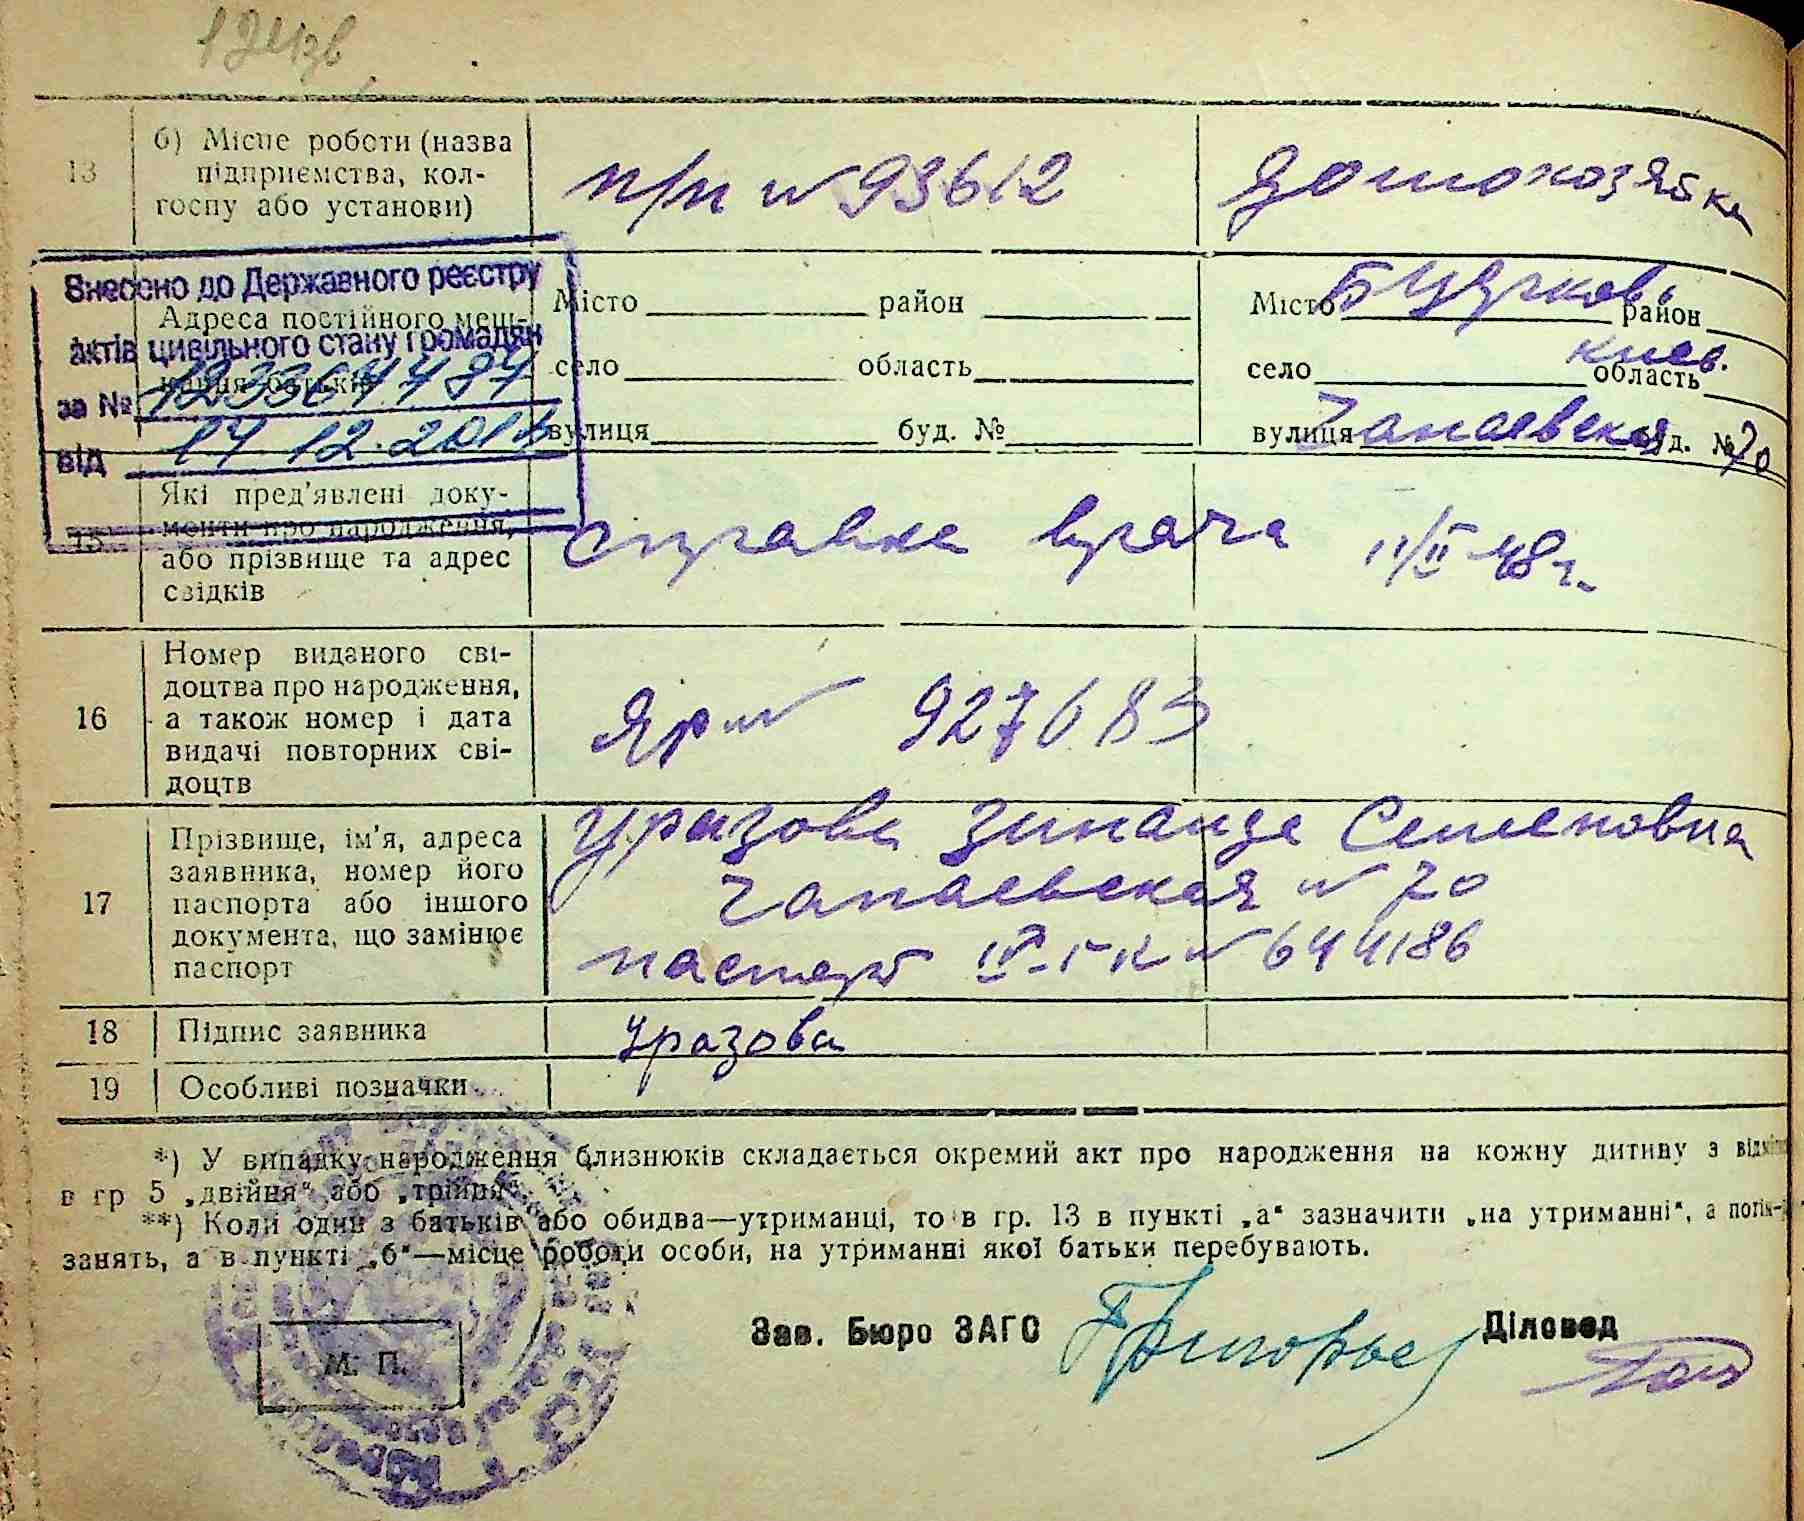 13
б) Місце роботи (назва
підприємства, кол-
госпу або установи)
п/п № 93612
Домохозяйка
Внесено до Державного реєстру
актів цивільного стану громадян
за №
від 17 12.201
Адреса постійного меш-
кання батьків
Місто район
село область
вулиця буд. №
Місто район
село Киев. область
вулиця Чапаевская буд. № 70
15
Які пред'явлені доку-
менти про народження,
або прізвище та адрес
свідків
Справка врача 11/II 48 г.
16
Номер виданого сві-
доцтва про народження,
а також номер і дата
видачі повторних сві-
доцтв
ЯР № 927683
17
Прізвище, ім'я, адреса
заявника, номер його
паспорта або іншого
документа, що замінює
паспорт
Уразова Зинаида Семеновна
Чапаевская № 70
паспорт № 644186
18
Підпис заявника
Уразова
19
Особливі позначки
*) У випадку народження близнюків складається окремий акт про народження на кожну дитину з
в гр 5 „двійня“ або „трійня“.
**) Коли один з батьків або обидва—утриманці, то в гр. 13 в пункті „а“ зазначити „на утриманні“, а
занять, а в пункті „б“—місце роботи особи, на утриманні якої батьки перебувають.
Зав. Бюро ЗАГС
Діловод
М. П.